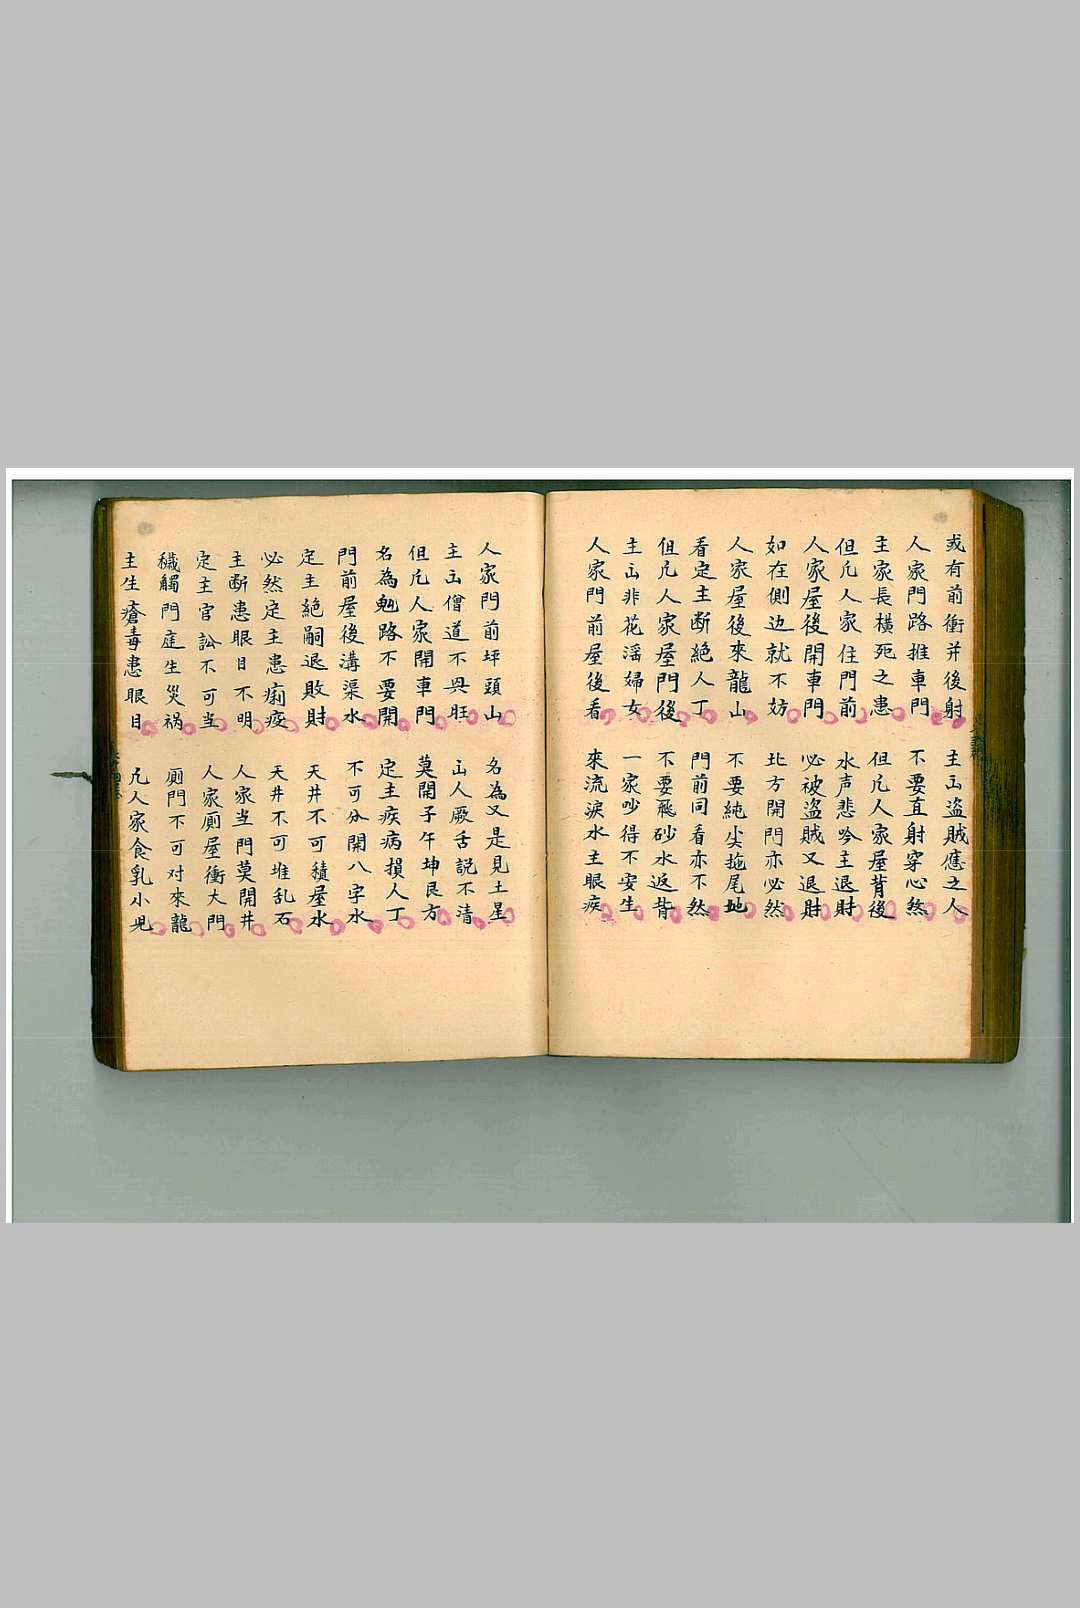 或有前衝并後射 主出盜賊應之人
人家門路推車門 不要直射穿心煞
主家長橫死之患 但凡人家屋背後
但凡人家住門前 水声悲吟主退財
人家屋後開車門 必被盜賊又退財
如在側边就不妨 北方開門亦必然
人家屋後來龍山 不要純尖拖尾地
看定主断絕人丁 門前同看亦不然
但凡人家屋門後 不要飛砂水返背
主出非花滛婦女 一家吵得不安生
人家門前屋後看 來流淚水主眼疾
人家門前坪頭山 名為又是見土星
主出僧道不興旺 出人厥舌説不清
但凡人家開車門 莫開子午坤艮方
名為 路不要開 定主疾病損人丁
門前屋後溝渠水 不可分開八字水
定主絕嗣退敗財 天井不可積屋水
必然定主患痢疫 天井不可堆乱石
主断患眼目不明 人家当門莫開井
定主官訟不可当 人家厠屋衝大門
穢觸門庭生災禍 厠門不可对來龍
主生瘡毒患眼目 凡人家食乳小児